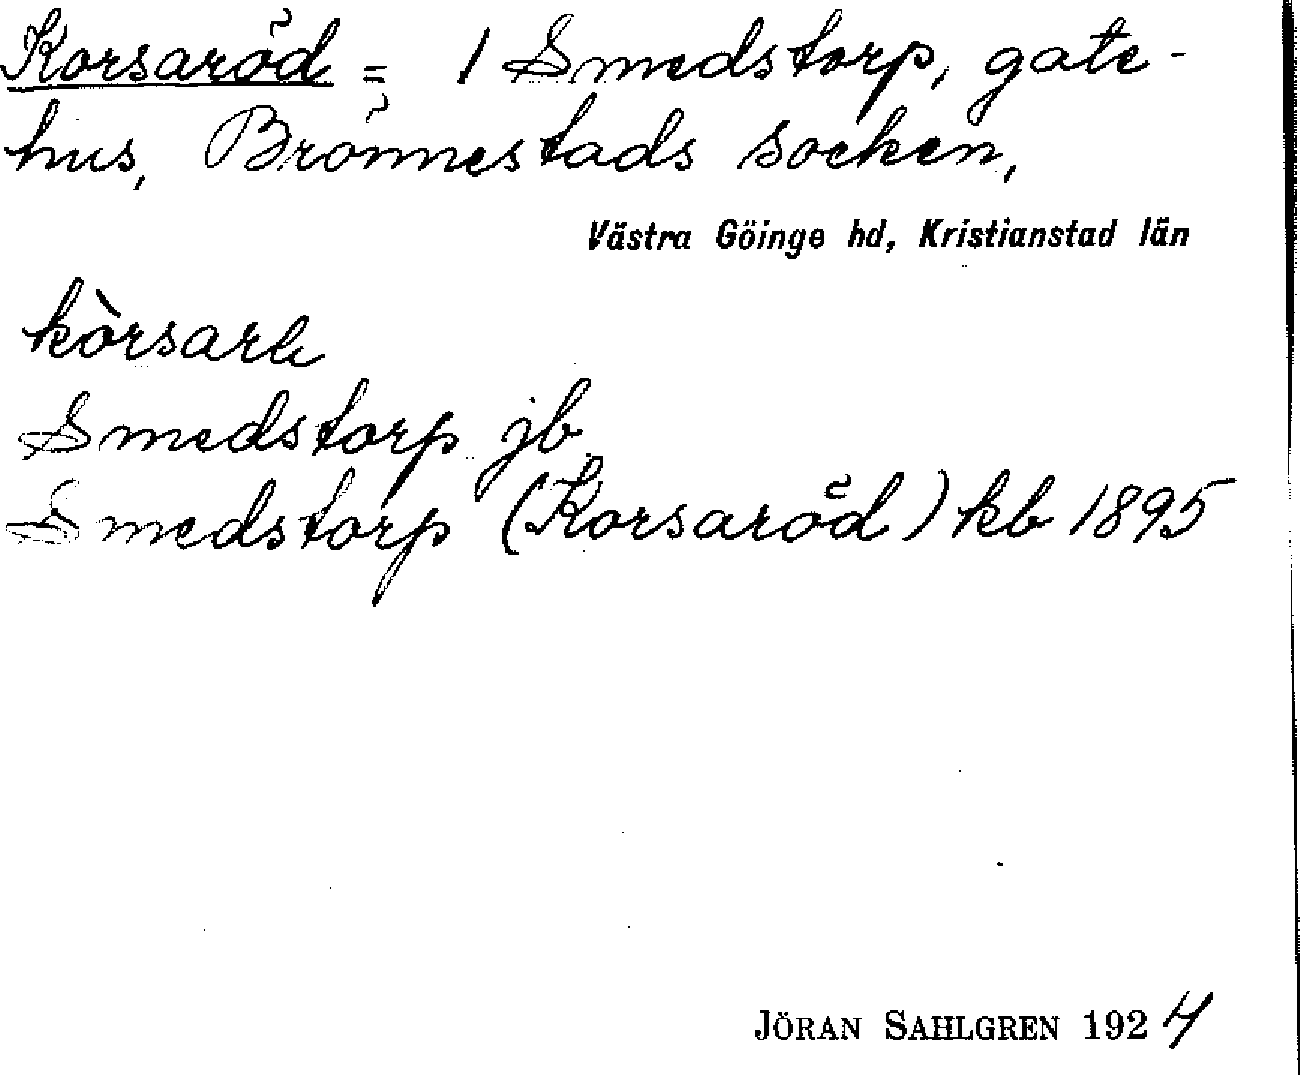 Korsaröd = 1 Smedstorp, gate-
hus, Brönnestads socken,
Västra Göinge hd, Kristianstad län
kòrsare
Smedstorp jb
Smedstorp (Korsaröd) kb 1895
JÖRAN SAHLGREN 1924